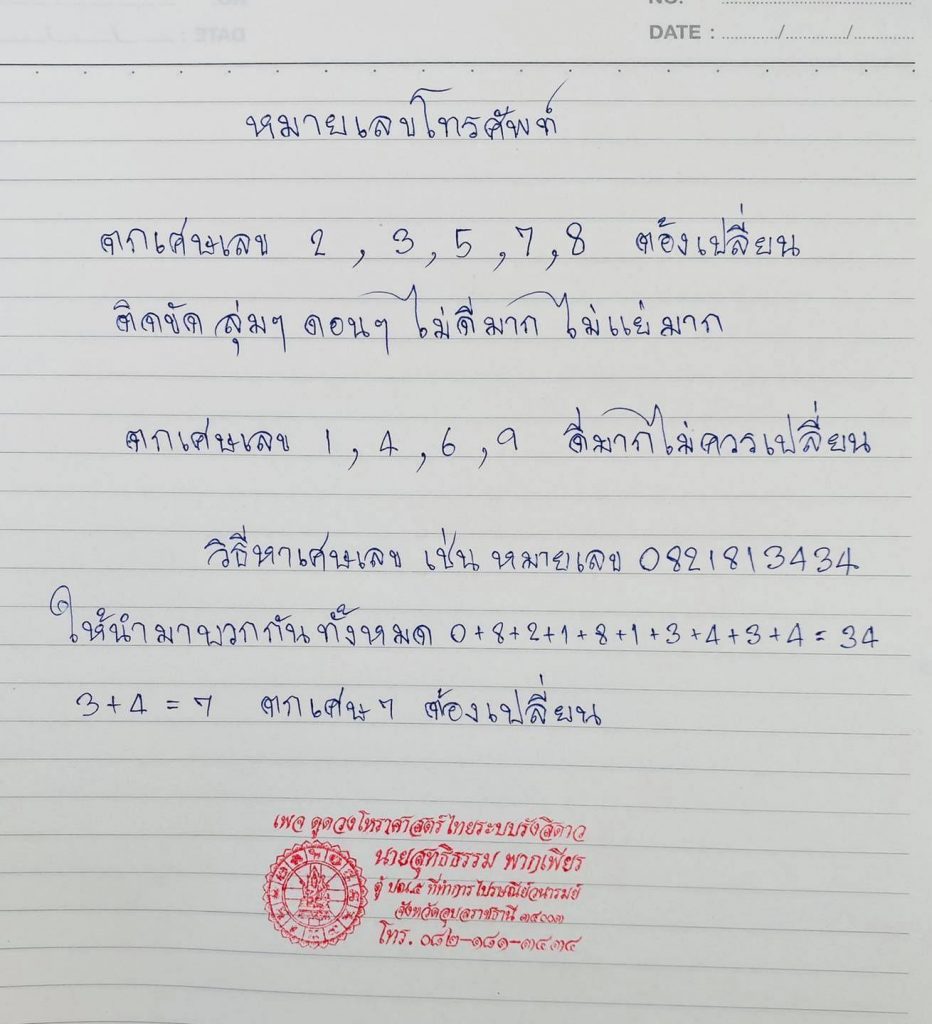 NO.
DATE : ............/............./.............
หมายเลขโทรศัพท์
ตกเศษเลข 2 , 3 , 5 , 7 , 8 ต้องเปลี่ยน
ติดขัด ลุ่มๆ ดอนๆ ไม่ดีมาก ไม่แย่มาก
ตกเศษเลข 1 , 4 , 6 , 9 ดีมากไม่ควรเปลี่ยน
วิธีหาเศษเลข เช่น หมายเลข 0821813434
ให้นำมาบวกกันทั้งหมด 0+8+2+1+8+1+3+4+3+4 = 34
3+4 = 7 ตกเศษ 7 ต้องเปลี่ยน
เพจ ดูดวงโหราศาสตร์ไทยระบบรังสีดาว
นายสุทธิธรรม พากเพียร
ตู้ ปณ.๕ ที่ทำการไปรษณีย์วนารมย์
จังหวัดอุบลราชธานี ๓๔๐๐๓
โทร. ๐๘๒-๑๘๑-๓๔๓๔